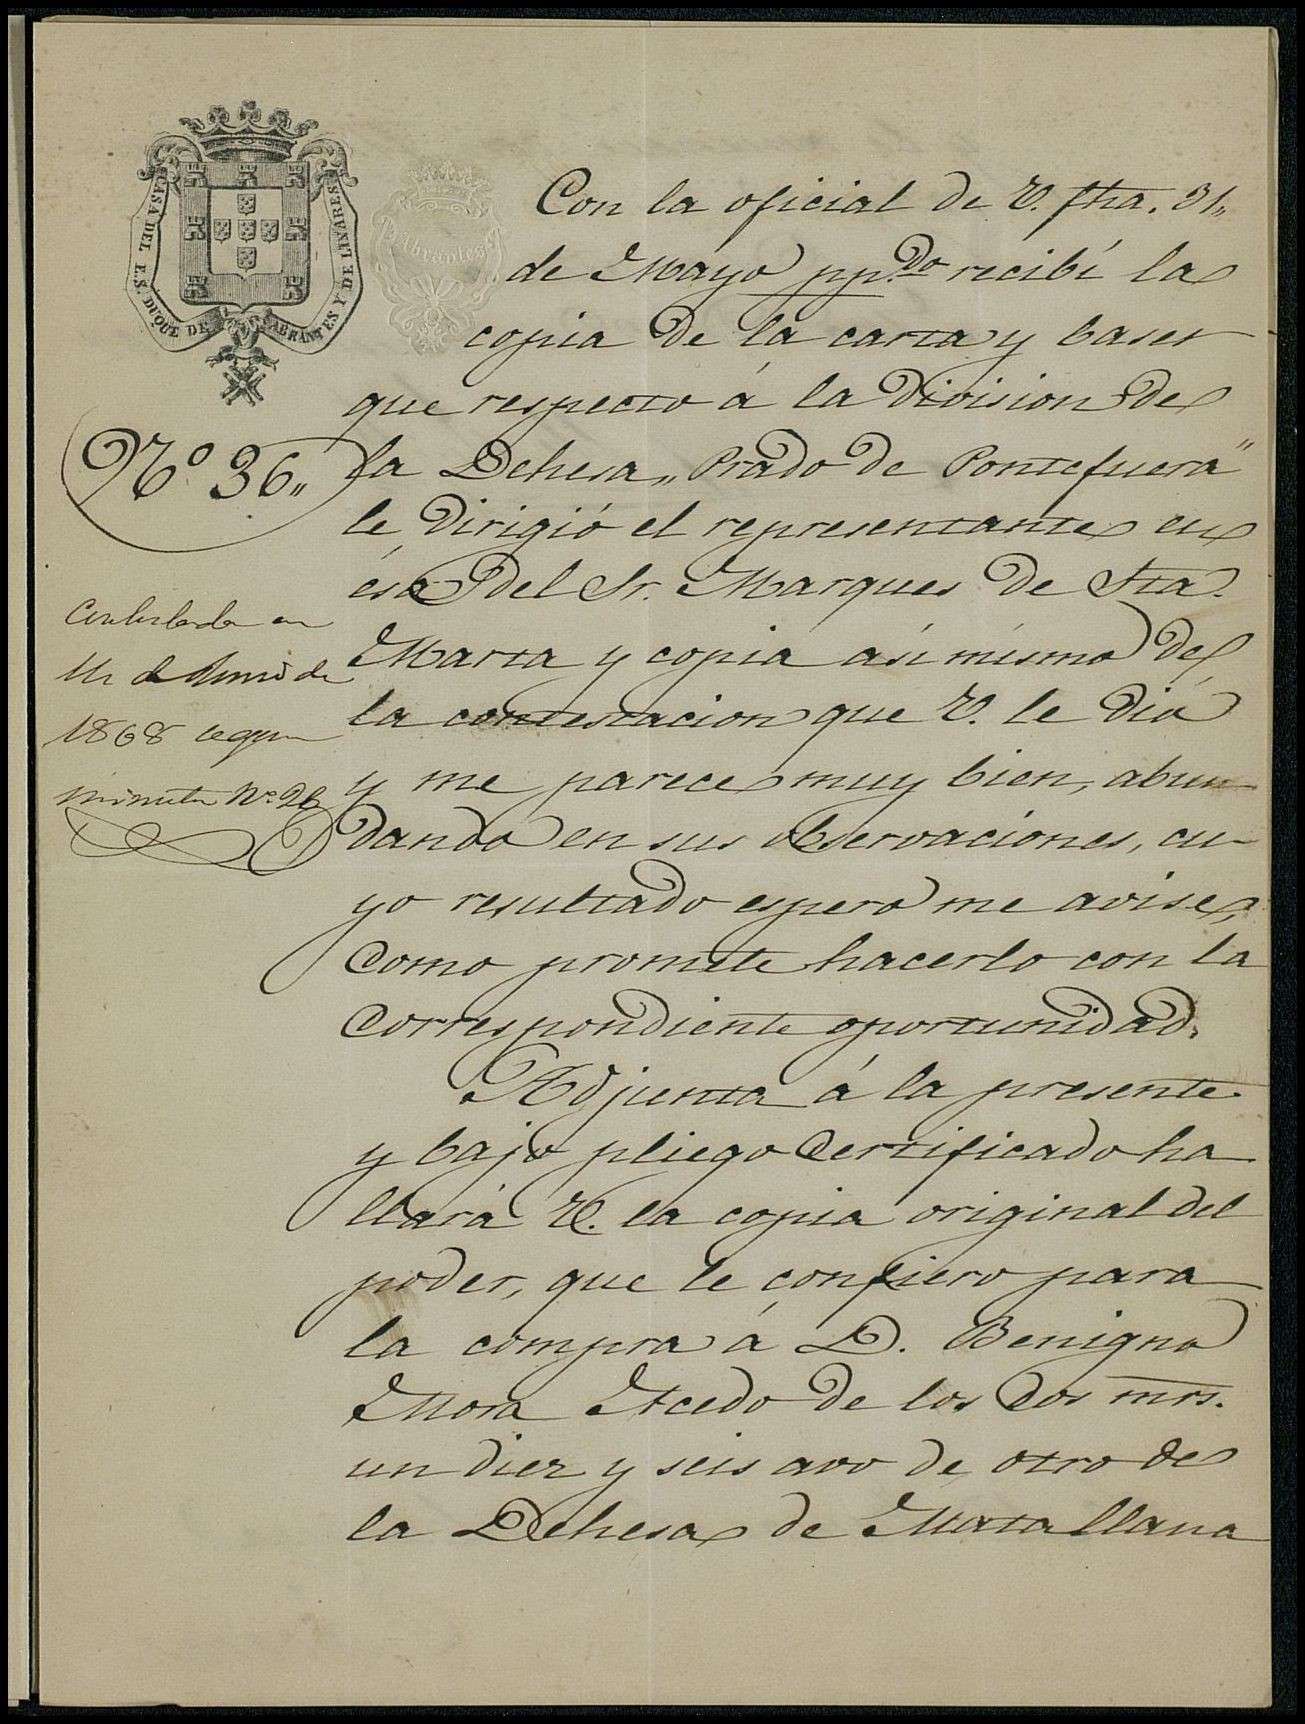 CASA DEL E.S. DUQUE DE ABRANTES Y DE LINARES
Abrantes
Con la oficial de V. fha. 31,,
de Mayo pp.do recibí la
copia de la carta y bases
que respecto á la division de
la Dehesa „Prado de Pontefuera"
le dirigió el representante en
ésa del Sr. Marques de Sta.
Marta y copia asi mismo de
la contestacion que V. le dió
y me parece muy bien, abun-
dando en sus observaciones, cu-
yo resultado espero me avise,
como promete hacerlo con la
correspondiente oportunidad.
Adjunta á la presente
y bajo pliego certificado ha
llará V. la copia original del
poder, que le confiero para
la compra á D. Benigno
Mora Acedo de los dos mrs.
un diez y seis avo de otro de
la Dehesa de Matallana
Nº 36,,
Contestada en
de Junio de
1868 segun
minuta Nº 26